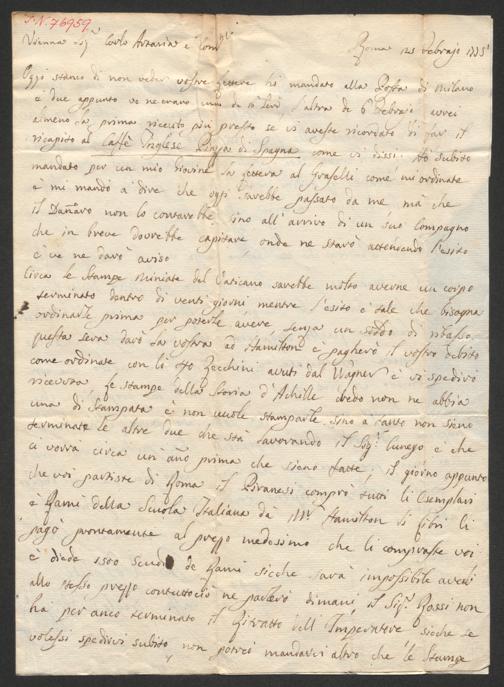 I.N. 76959
Vienna Sig.r Carlo Artaria e Comp.
Roma 23 Febrajo 1775
Oggi stanco di non veder vostre lettere hò mandato alla Posta di Milano
e due appunto ve ne erano una de l'altra de 6 Febraio avrei
almeno la prima ricevuto più presto se vi aveste ricordato di far il
ricapito al Caffè Inglese Piazza di Spagna come vi dissi. Hò subito
mandato per un mio Giovine la lettera al fratelli come mi ordinate
e mi mandò a dire che oggi sarebbe passato da me mà che
il Danaro non lo contarebbe sino all'arrivo di un suo Compagno
che in breve dovrebbe capitare onde ne starò attendendo l'esito
e ve ne darò aviso
Circa le Stampe miniate del Vaticano sarebbe molto averne un corpo
terminato dentro di venti giorni mentre l'esito è tale che bisogna
ordinarle prima per poterle avere senza un soldo di ribasso
questa sera darò la vostra ad Hamilton e pagherò il vostro debito
come ordinate con li Zecchini avuti dal Wagner e vi spedirò
ricevuta le stampe della Storia d'Achille credo non ne abbia
una di Stampata e non vuole stamparle sino a tanto non siano
terminate le altre due che sta lavorando il Sig.r Cunego e che
ci vorrà circa un año prima che siano fatte, il giorno appunto
che voi partiste di Roma il Piranesi comprò tutti li Esemplari
e Rami della Scuola Italiana da Mr. Hamilton li
pagò prontamente al prezzo medesimo che li compraste voi
e diede 1500 Scudi de Rami sicche sarà impossibile averli
allo stesso prezzo contuttociò ne parlerò dimani, il Sig.r Rossi non
ha per anco terminato il Ritratto dell'Imperatore sicche se
volessi spedirvi subito non potrei mandarvi altro che le Stampe